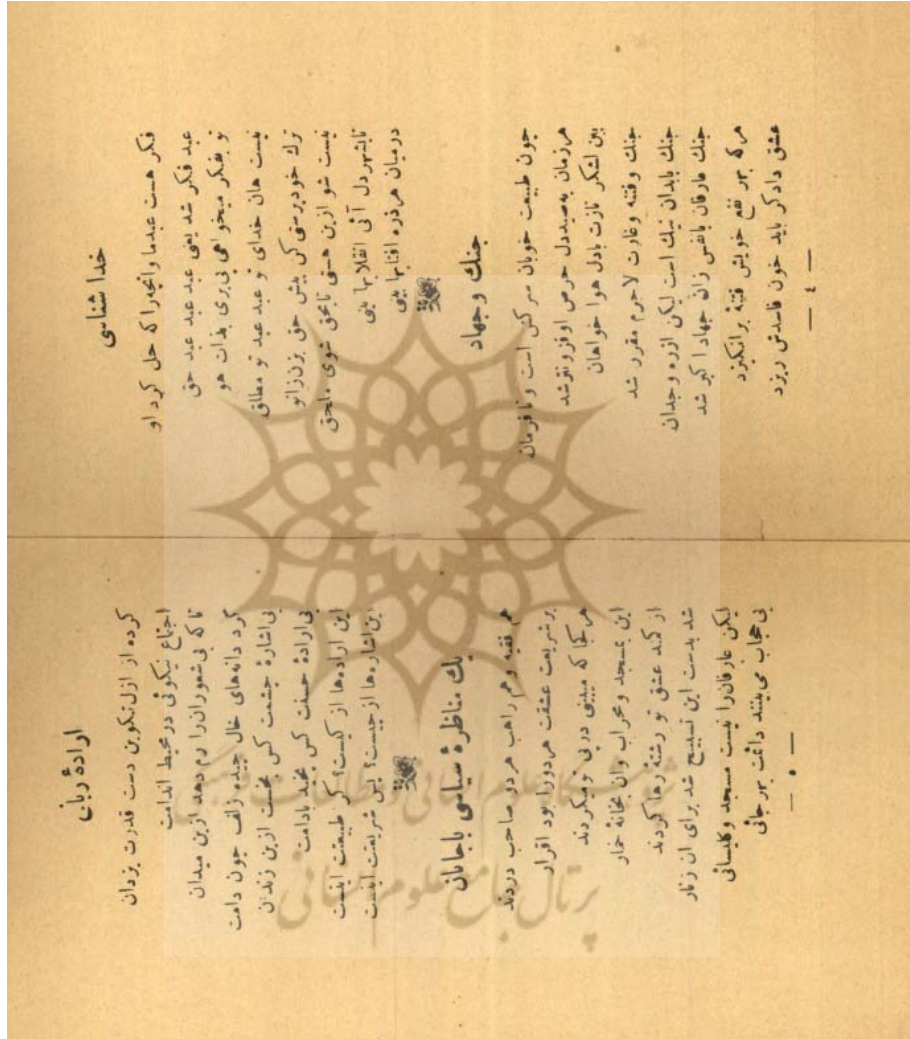 خدا شناسی
فكر هست عبدما وانچه را كه حل كرد او
عبد فكر شد یعنی عبد عبد عبد حق
تو بفكر میخواهی پی بری بذات هو
نیست هان خدای تو عبد عبد تو مطلق
ترك خودپرستی كن پیش حق بزن زانو
نیست شو ازین هستی تابحق شوی ملحق
تابشهر دل آئی انقلابها بینی
درمیان هر ذره افتابها بینی
جنك وجهاد
چون طبیعت خوبان سركش است و نافرمان
هر زمان به صیددل حرص اوفزونترشد
بین لشكر نازت بادل هوا خواهان
جنك وفتنه وغارت لاجرم مقرر شد
جنك بابدان نیك است لیكن ازره وجدان
جنك عارفان بانفس زان جهاد اكبر شد
هركه بهر نفع خویش فتنهٔ برانگیزد
عشق دادگر باید خون فاسدش ریزد
— ٤ —
ارادهٔ ربانی
كرده از ازل تكوین دست قدرت یزدان
اجتماع نیكوئی درمحیط اندامت
تا كه بی شعوران را رم دهد ازین میدان
گرد دانه‌های خال چیده زلف چون دامت
بی اشارهٔ چشمت كس نجست ازین زندان
بی ارادهٔ حسنت كس نچید بادامت
این اراده‌ها از كیست؟ گر طبیعت اینست
این اشاره‌ها از چیست؟ پس شریعت اینست
یك مناظرهٔ سیاسی باجانان
هم فقیه وهم راهب هردو صاحب دردند
بر شریعت عشقت هردورا بود اقرار
هر كجا كه میبینی درپی تومیگردند
این بمسجد ومحراب وان بخانهٔ خمار
از كمند عشق تو رشتهٔ رها كردند
شد بدست این تسبیح شد برای ان زنار
لیكن عارفان را نیست مسجد وكلیسائی
بی حجاب می‌بینند دائمت بهرجائی
— ٥ —
پژوهشگاه علوم انسانی و مطالعات فرهنگی
پرتال جامع علوم انسانی